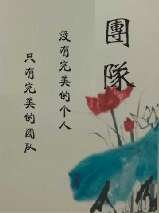 團隊
没有完美的个人
只有完美的团队